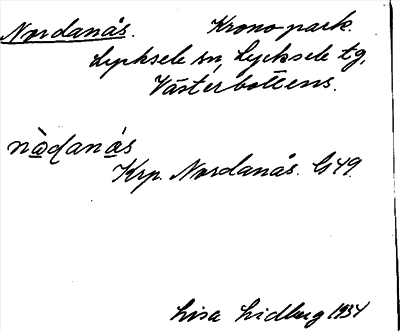 Nordanås. Kronopark.
Lycksele sn, Lycksele tg,
Västerbottens.
nàdanás
Krp. Nordanås. G49.
Lisa Lidberg 1934